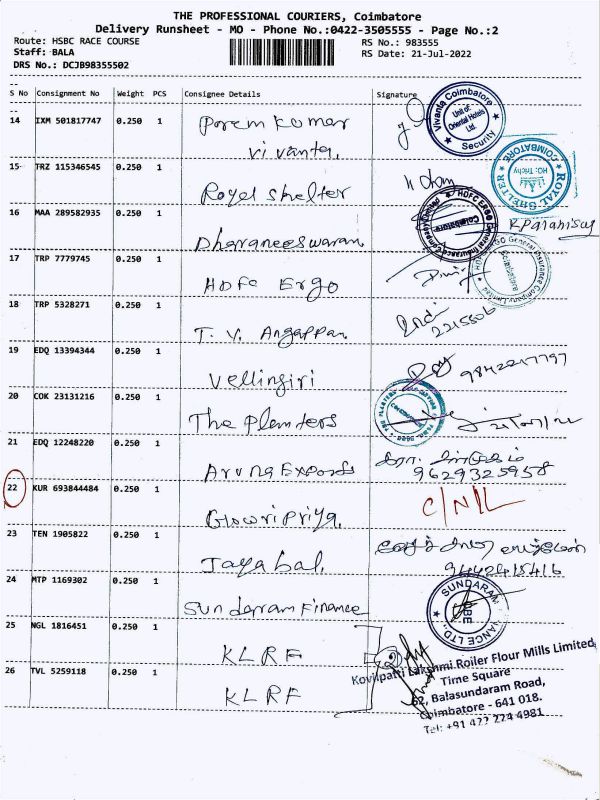 THE PROFESSIONAL COURIERS, Coimbatore
Delivery Runsheet - MO - Phone No.:0422-3505555 - Page No.:2
Route: HSBC RACE COURSE
RS No.: 983555
Staff: BALA
RS Date: 21-Jul-2022
DRS No.: DCJB98355502
S No Consignment No Weight PCS Consignee Details Signature
14 IXM 501817747 0.250 1 Prem Kumar
vivanta.
Vivanta Coimbatore
Unit of
Oriental Hotels
Ltd.
Security
15 TRZ 115346545 0.250 1 Royal Shelter
ROYAL SHELTER
HO: Trichy
COIMBATORE
16 MAA 289582935 0.250 1 Dharaneeswaran
HDFC ERGO General Insurance Company Limited
Coimbatore
17 TRP 7779745 0.250 1 HDFC Ergo
HDFC ERGO General Insurance Company Limited
Coimbatore
18 TRP 5328271 0.250 1 T. V. Angappan
19 EDQ 13394344 0.250 1 Vellingiri
20 COK 23131216 0.250 1 The Planters
21 EDQ 12248220 0.250 1 Aruna Exports
9629325958
22 KUR 693844484 0.250 1 Gowri Priya. C/N/L
23 TEN 1905822 0.250 1 Jayabal.
9442418416
24 MTP 1169302 0.250 1 Sundaram Finance
SUNDARAM
25 NGL 1816451 0.250 1 KLRF
26 TVL 5259118 0.250 1 KLRF
Kovilpatti Lakshmi Roller Flour Mills Limited
Time Square
62, Balasundaram Road,
Coimbatore - 641 018.
Tel: +91 422 224 4981